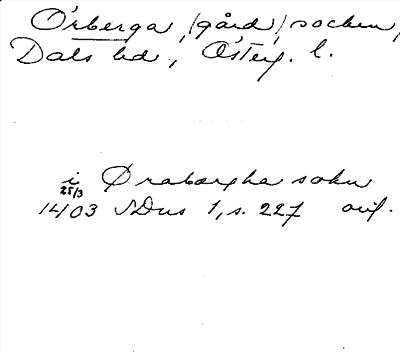 Örberga, /gård/, socken,
Dals hd, Österg. l.
i Ørabærgha sokn
25/3
1403 SDns 1, s. 227 orig.